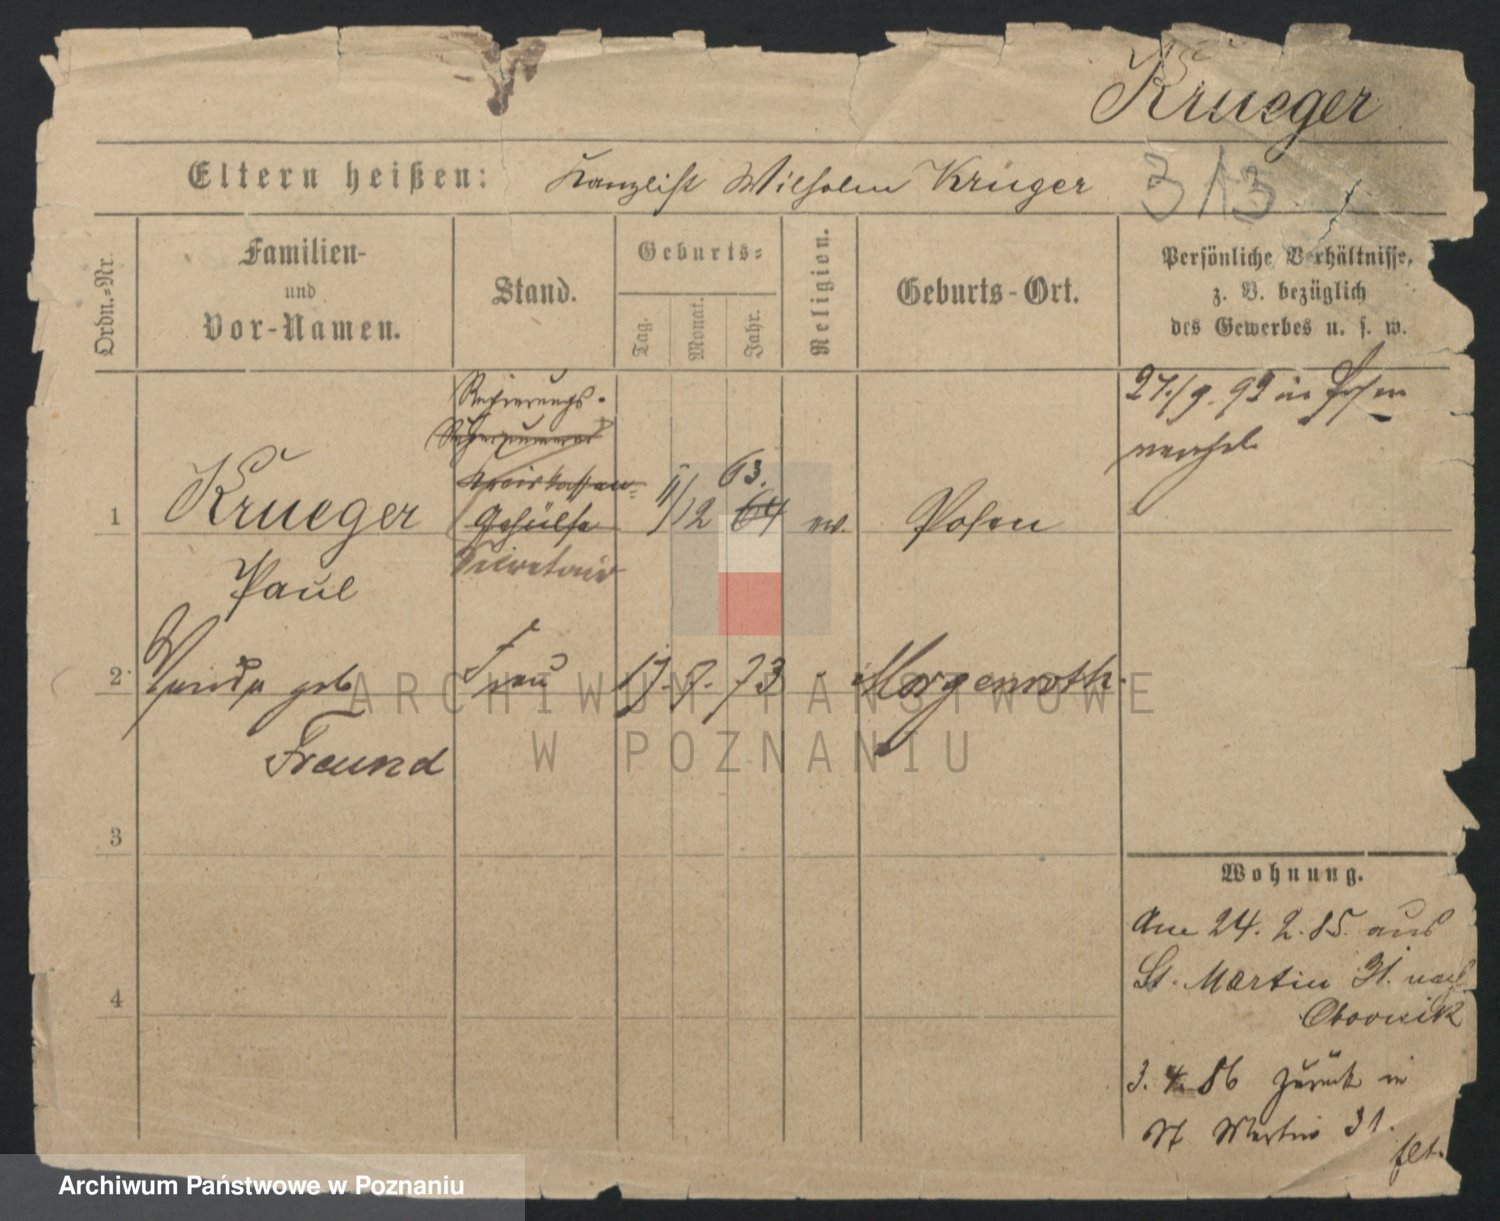 Krueger
Eltern heißen: Kanzlist Wilhelm Krüger
313
Ordn.=Nr.
Familien-
und
Vor-Namen.
Stand.
Geburts=
Tag.
Monat.
Jahr.
Religion.
Geburts-Ort.
Persönliche Verhältnisse,
z. B. bezüglich
des Gewerbes u. s. w.
27./9. 92 in Posen
verehel.
Regierungs-
Kreiskassen-
Gehülfe
Secretair
1
Krueger
Paul
11/12
63.
64
ev.
Posen
2
geb
Freund
Frau
17. 5. 73
Morgenroth.
3
4
Wohnung.
Am 24. 2. 85. aus
St. Martin 31. nach
Obornik
3. 4. 86 zurück in
St Martin 31.
ARCHIWUM PAŃSTWOWE
W POZNANIU
Archiwum Państwowe w Poznaniu